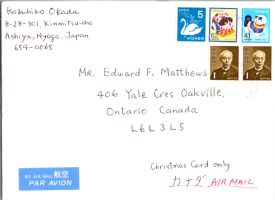 Kazuhiko Okada
8-28-301, Kinmitsu-cho
Ashiya, Hyogo, Japan
659-0065
5
62
41
1
1
MR. Edward F. Matthews
406 Yale Cres Oakville,
Ontario Canada
L6L 3L5
Christmas Card only
カナダ AIR MAIL
BY AIR MAIL 航空
PAR AVION